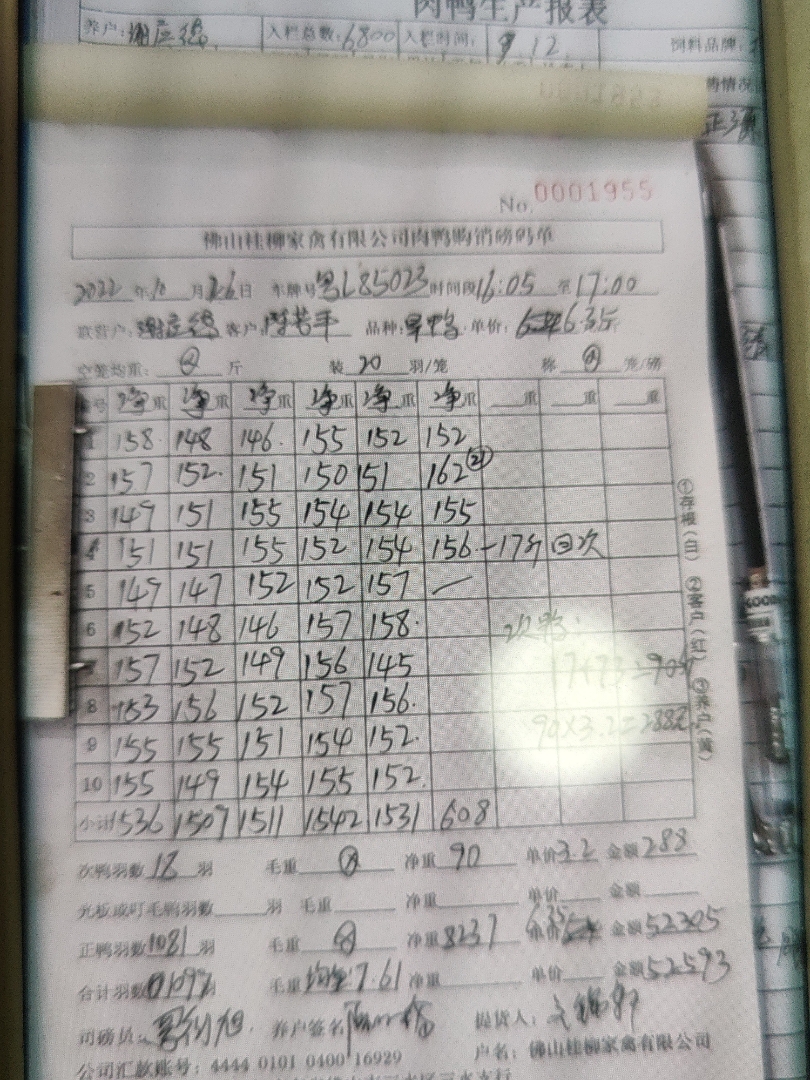 肉鸭生产报表
养户: 入栏总数:6800 入栏时间: 9.12 饲料品牌:
No. 0001955
佛山桂柳家禽有限公司肉鸭购销磅码单
2022年10月26日 车牌号粤L85023时间段16:05至17:00
联营户: 客户: 品种:旱鸭 单价: 6.35
空笼均重: 斤 装 20 羽/笼 称 笼/磅
编号 净重 净重 净重 净重 净重 净重 重 重 重
1 158 148 146 155 152 152
2 157 152 151 150 151 162
3 149 151 155 154 154 155
4 151 151 155 152 154 156 -17斤 次
5 149 147 152 152 157
6 152 148 146 157 158
次鸭:
7 157 152 149 156 145 17+73=90斤
8 153 156 152 157 156
9 155 155 151 154 152 90×3.2=288元
10 155 149 154 155 152
小计 1536 1507 1511 1542 1531 608
①存根(白) ②客户(红) ③养户(黄)
次鸭羽数 18 羽 毛重 净重 90 单价3.2 金额288
光板或叮毛鸭羽数 羽 毛重 净重 单价 金额
正鸭羽数1081羽 毛重 净重8237 单价6.35 金额52305
合计羽数 毛重 均重7.61 净重 单价 金额52593
司磅员: 养户签名 提货人:
公司汇款账号: 4444 0101 0400 16929 户名: 佛山桂柳家禽有限公司